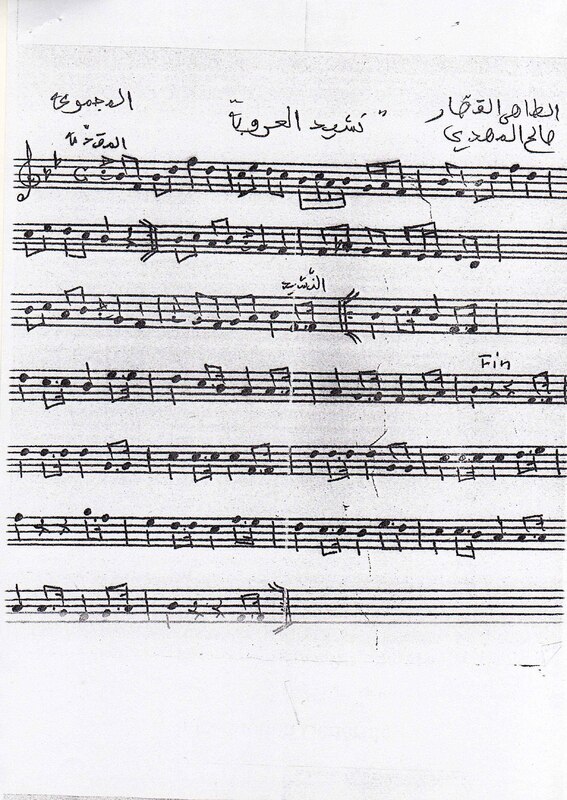 الطاهر القصّار
صالح المهدي
" نشيد العروبة
المجموعة
المقدّمة
النّشيد
Fin